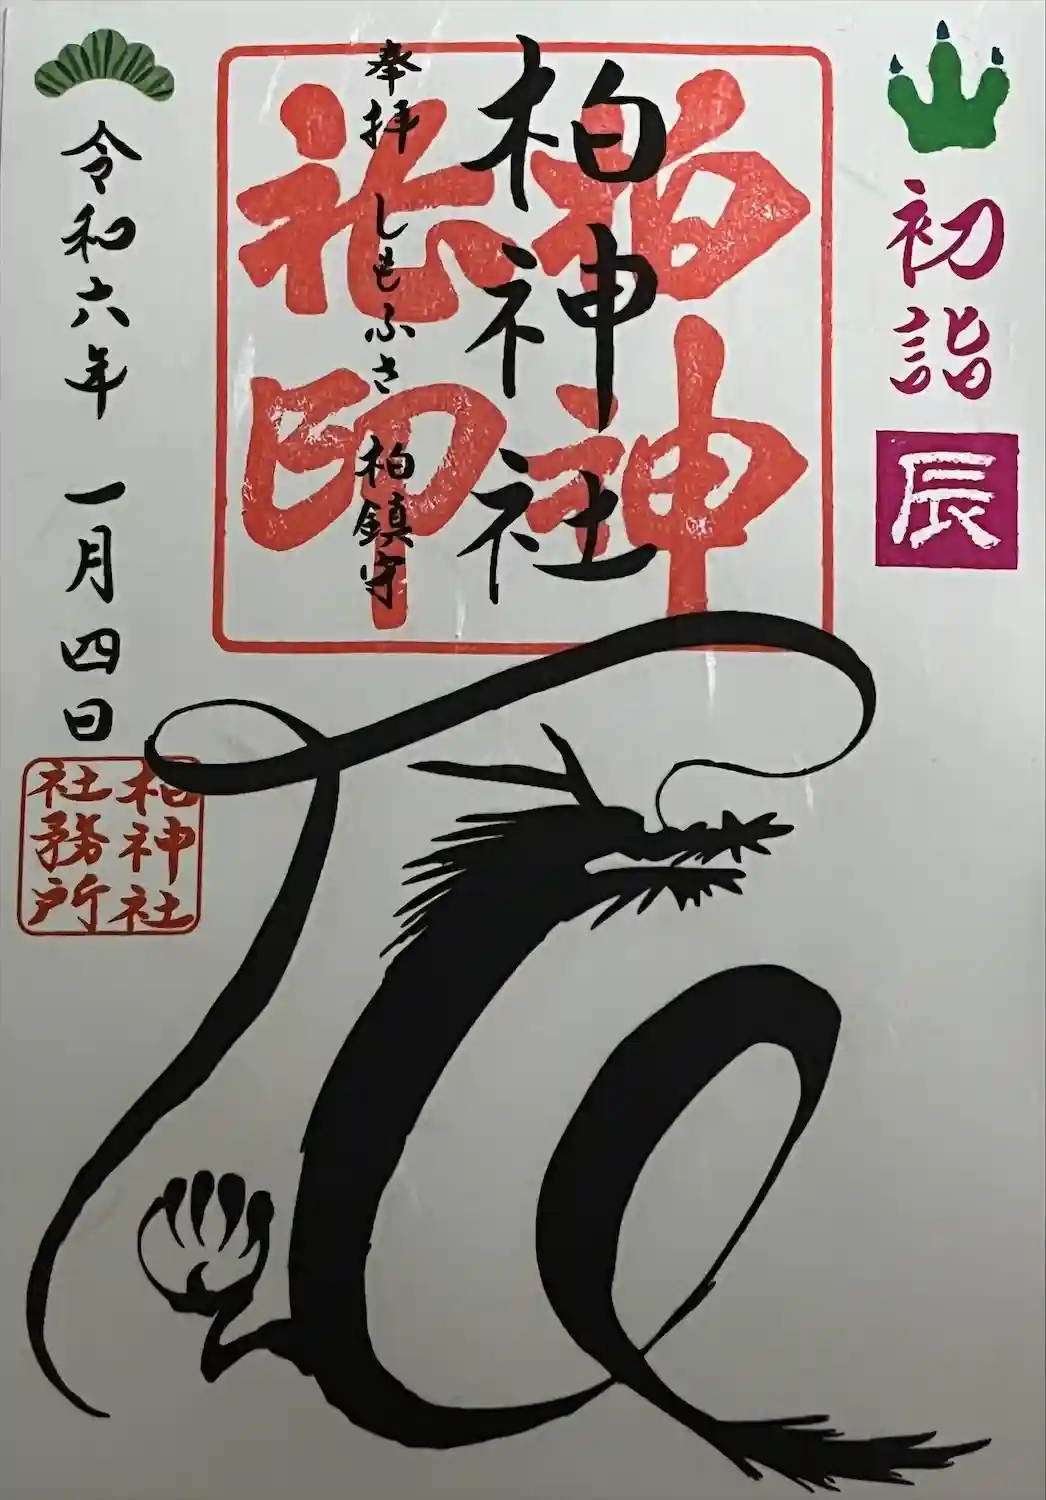 初詣
辰
柏神社
奉拝 しもふさ 柏鎮守
柏神
社印
令和六年 一月四日
柏神社
社務所